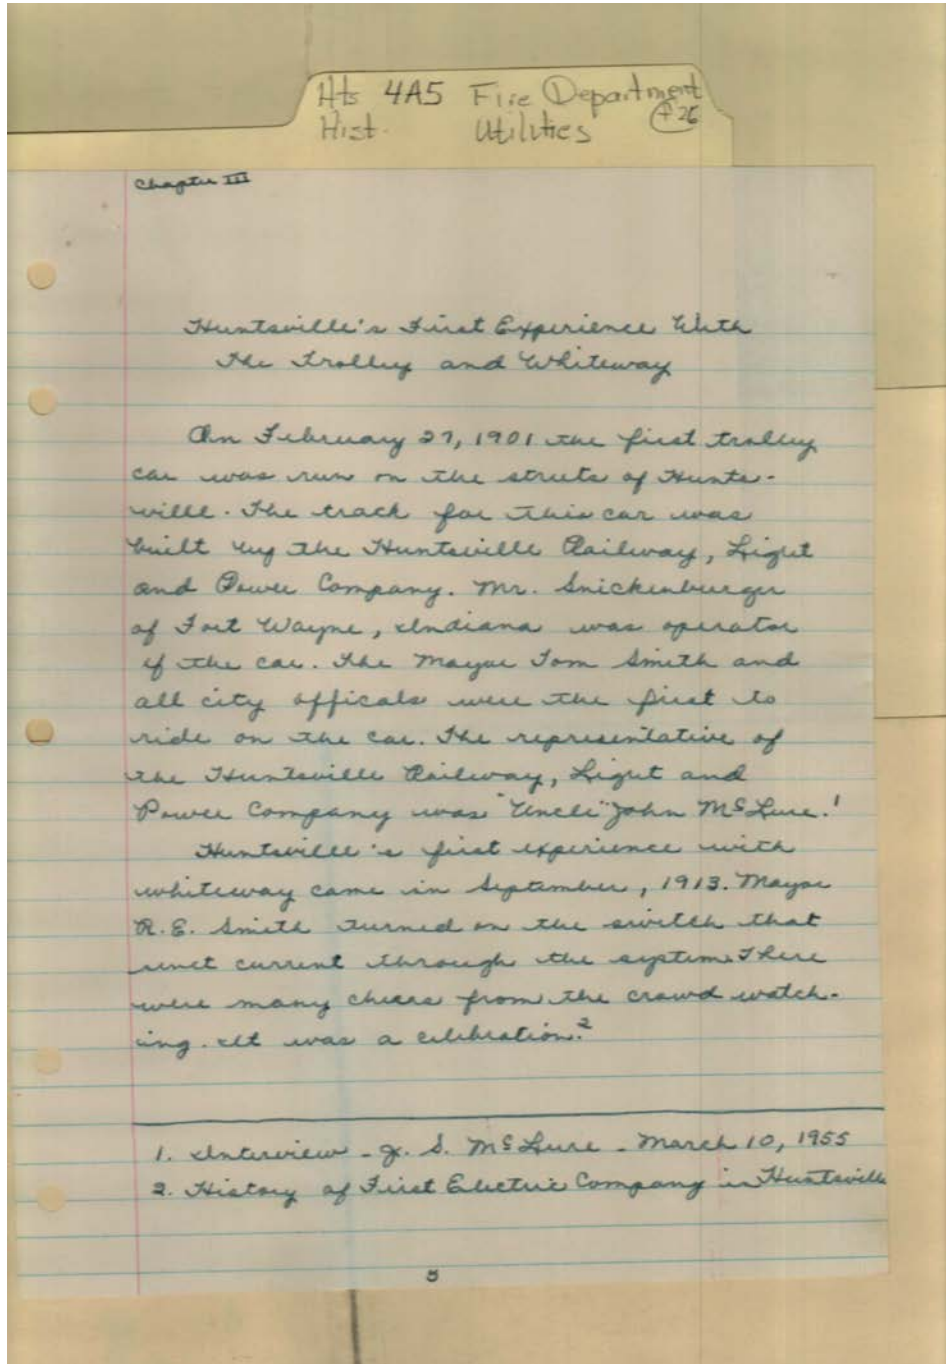 Hts 4A5 Fire Department
Hist. Utilities F26
Chapter III
Huntsville's First Experience With
The Trolley and Whiteway
On February 27, 1901 the first trolley
car was run on the streets of Hunts-
ville. The track for this car was
built by the Huntsville Railway, Light
and Power Company. Mr. Snickenburger
of Fort Wayne, Indiana was operator
of the car. The Mayor Tom Smith and
all city officals were the first to
ride on the car. The representative of
the Huntsville Railway, Light and
Power Company was "Uncle" John McLure.1
Huntsville's first experience with
whiteway came in September, 1913. Mayor
R.E. Smith turned on the switch that
sent current through the system. There
were many cheers from the crowd watch-
ing. It was a celebration.2
1. Interview - J. S. McLure - March 10, 1955
2. History of First Electric Company in Huntsville
5